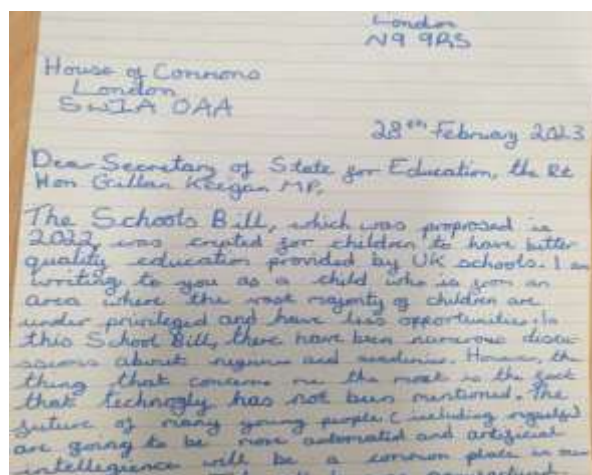 London
N9 9RS
House of Commons
London
SW1A 0AA
28th February 2023
Dear Secretary of State for Education, the Rt
Hon Gillan Keegan MP,
The Schools Bill, which was proprosed in
2022, was created for children to have better
quality education provided by UK schools. I am
writing to you as a child who is from an
area where the vast majority of children are
under privileged and have less opportunities. In
this School Bill, there have been numerous discu-
ssions about and academies. However, the
thing that concerns me the most is the fact
that technogly has not been mentioned. The
future of many young people (including myself)
are going to be more automated and artificial
intellegience will be a common place in